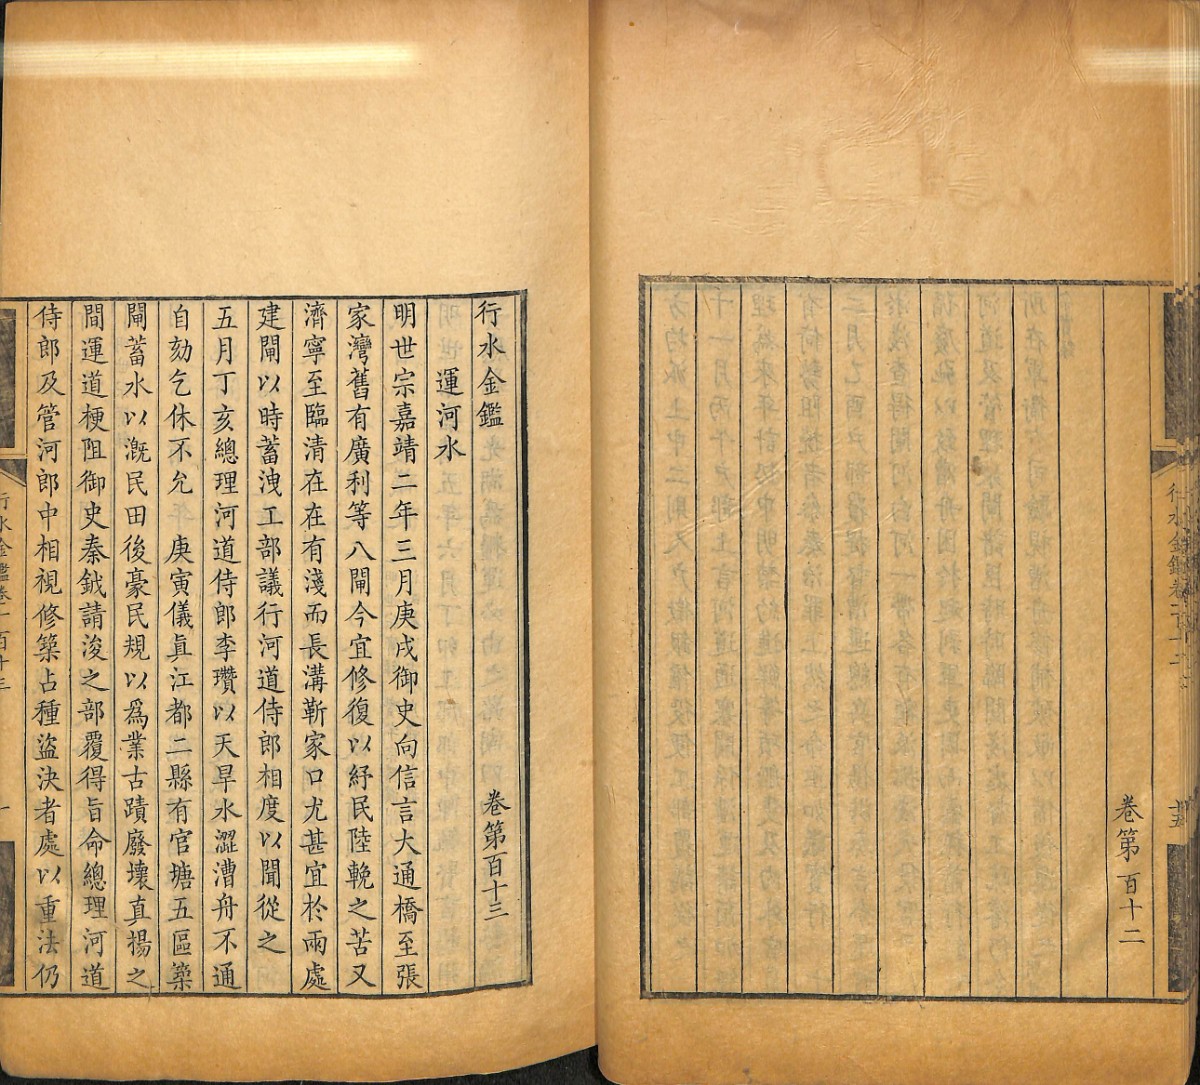 卷第百十二
行水金鑑　卷第百十三
運河水
明世宗嘉靖二年三月庚戌御史向信言大通橋至張
家灣舊有廣利等八閘今宜修復以紓民陸輓之苦又
濟寧至臨清在在有淺而長溝靳家口尤甚宜於兩處
建閘以時蓄洩工部議行河道侍郎相度以聞從之
五月丁亥總理河道侍郎李瓚以天旱水澀漕舟不通
自劾乞休不允　庚寅儀真江都二縣有官塘五區築
閘蓄水以溉民田後豪民規以爲業古蹟廢壞真揚之
間運道梗阻御史秦鉞請浚之部覆得旨命總理河道
侍郎及管河郎中相視修築占種盜決者處以重法仍
行水金鑑卷一百十三
一